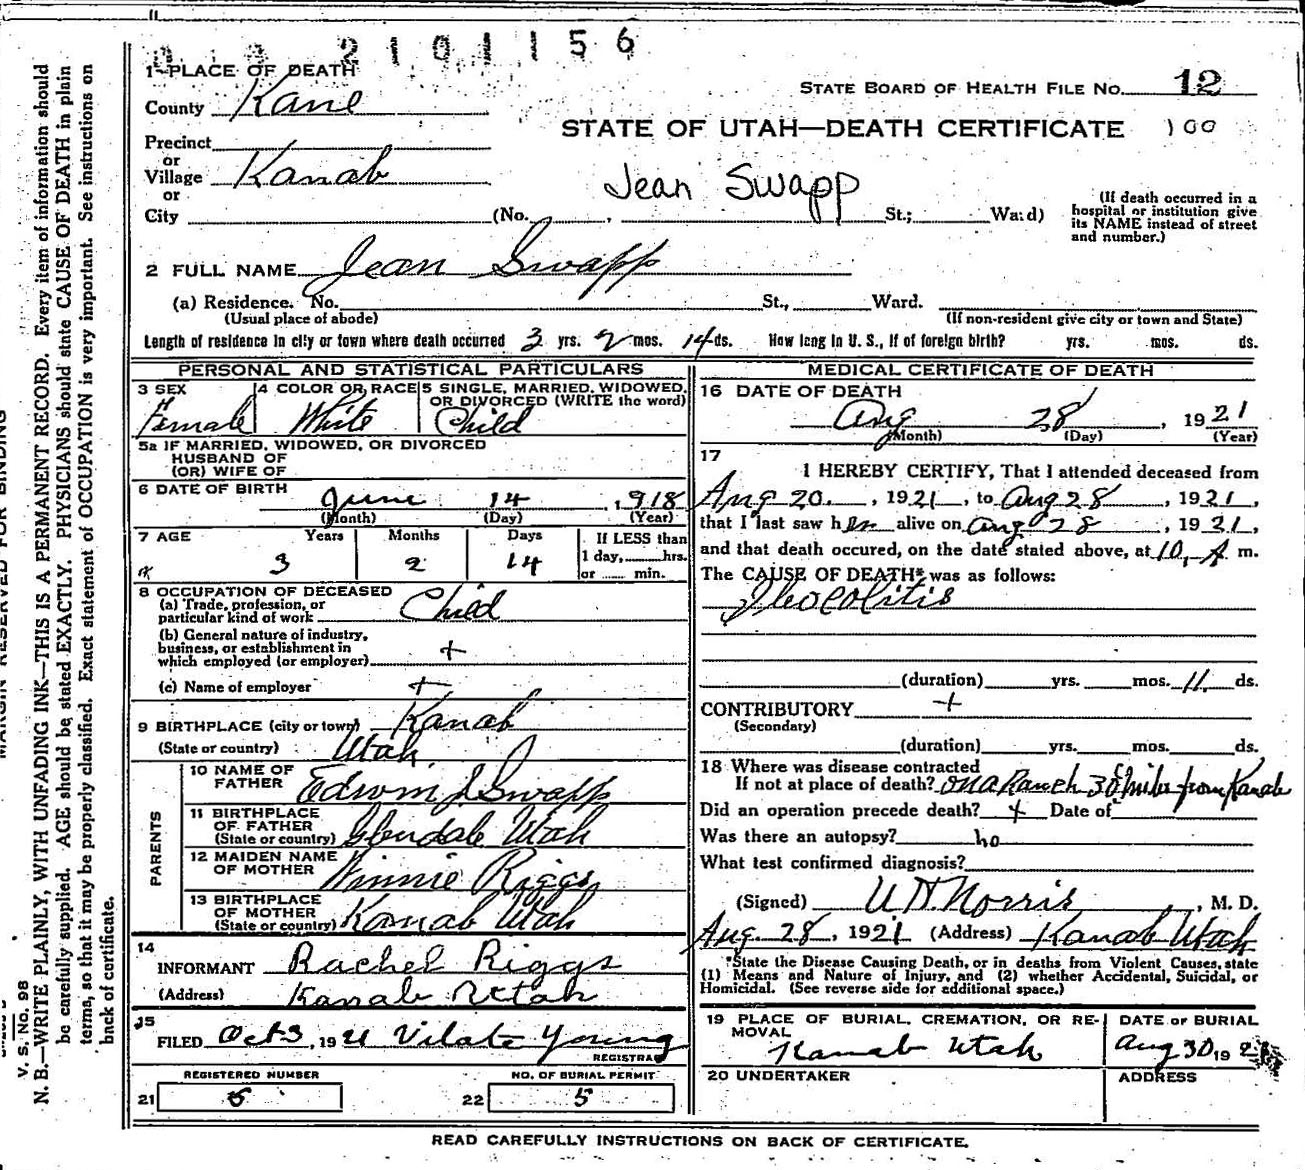 2101156
1 PLACE OF DEATH
STATE BOARD OF HEALTH FILE No. 12
County Kane
STATE OF UTAH—DEATH CERTIFICATE 100
Precinct
or
Village Kanab
or
Jean Swapp
City (No. , St.; Ward)
(If death occurred in a
hospital or institution give
its NAME instead of street
and number.)
2 FULL NAME Jean Swapp
(a) Residence. No. St., Ward.
(Usual place of abode) (If non-resident give city or town and State)
Length of residence in city or town where death occurred 3 yrs. 2 mos. 14 ds. How long in U. S., if of foreign birth? yrs. mos. ds.
PERSONAL AND STATISTICAL PARTICULARS
3 SEX 4 COLOR OR RACE 5 SINGLE, MARRIED, WIDOWED,
OR DIVORCED (WRITE the word)
Female White Child
5a IF MARRIED, WIDOWED, OR DIVORCED
HUSBAND OF
(OR) WIFE OF
6 DATE OF BIRTH June 14, 1918
(Month) (Day) (Year)
7 AGE Years Months Days If LESS than
1 day, hrs.
or min.
3 2 14
8 OCCUPATION OF DECEASED
(a) Trade, profession, or
particular kind of work Child
(b) General nature of industry,
business, or establishment in
which employed (or employer) +
(c) Name of employer +
9 BIRTHPLACE (city or town) Kanab
(State or country) Utah.
PARENTS
10 NAME OF
FATHER Edwin J Swapp
11 BIRTHPLACE
OF FATHER
(State or country) Glendale Utah
12 MAIDEN NAME
OF MOTHER Winnie Riggs
13 BIRTHPLACE
OF MOTHER
(State or country) Kanab Utah
14
INFORMANT Rachel Riggs
(Address) Kanab Utah
15
FILED Oct 3, 1921 Vilate Young
REGISTRAR
REGISTERED NUMBER NO. OF BURIAL PERMIT
21 5 22 5
MEDICAL CERTIFICATE OF DEATH
16 DATE OF DEATH
Aug 28, 1921
(Month) (Day) (Year)
17
I HEREBY CERTIFY, That I attended deceased from
Aug 20., 1921, to Aug 28, 1921,
that I last saw her alive on Aug 28, 1921,
and that death occured, on the date stated above, at 10, A m.
The CAUSE OF DEATH* was as follows:
Ileocolitis
(duration) yrs. mos. 11. ds.
CONTRIBUTORY +
(Secondary)
(duration) yrs. mos. ds.
18 Where was disease contracted
If not at place of death? on a Ranch 30 miles from Kanab
Did an operation precede death? + Date of
Was there an autopsy? no
What test confirmed diagnosis?
(Signed) Norris, M. D.
Aug. 28, 1921 (Address) Kanab Utah
*State the Disease Causing Death, or in deaths from Violent Causes, state
(1) Means and Nature of Injury, and (2) whether Accidental, Suicidal, or
Homicidal. (See reverse side for additional space.)
19 PLACE OF BURIAL, CREMATION, OR RE-
MOVAL
Kanab Utah
DATE OF BURIAL
Aug 30 192
20 UNDERTAKER ADDRESS
READ CAREFULLY INSTRUCTIONS ON BACK OF CERTIFICATE.
MARGIN RESERVED FOR BINDING
V. S. No. 98
N. B.—WRITE PLAINLY, WITH UNFADING INK—THIS IS A PERMANENT RECORD. Every item of information should
be carefully supplied. AGE should be stated EXACTLY. PHYSICIANS should state CAUSE OF DEATH in plain
terms, so that it may be properly classified. Exact statement of OCCUPATION is very important. See instructions on
back of certificate.